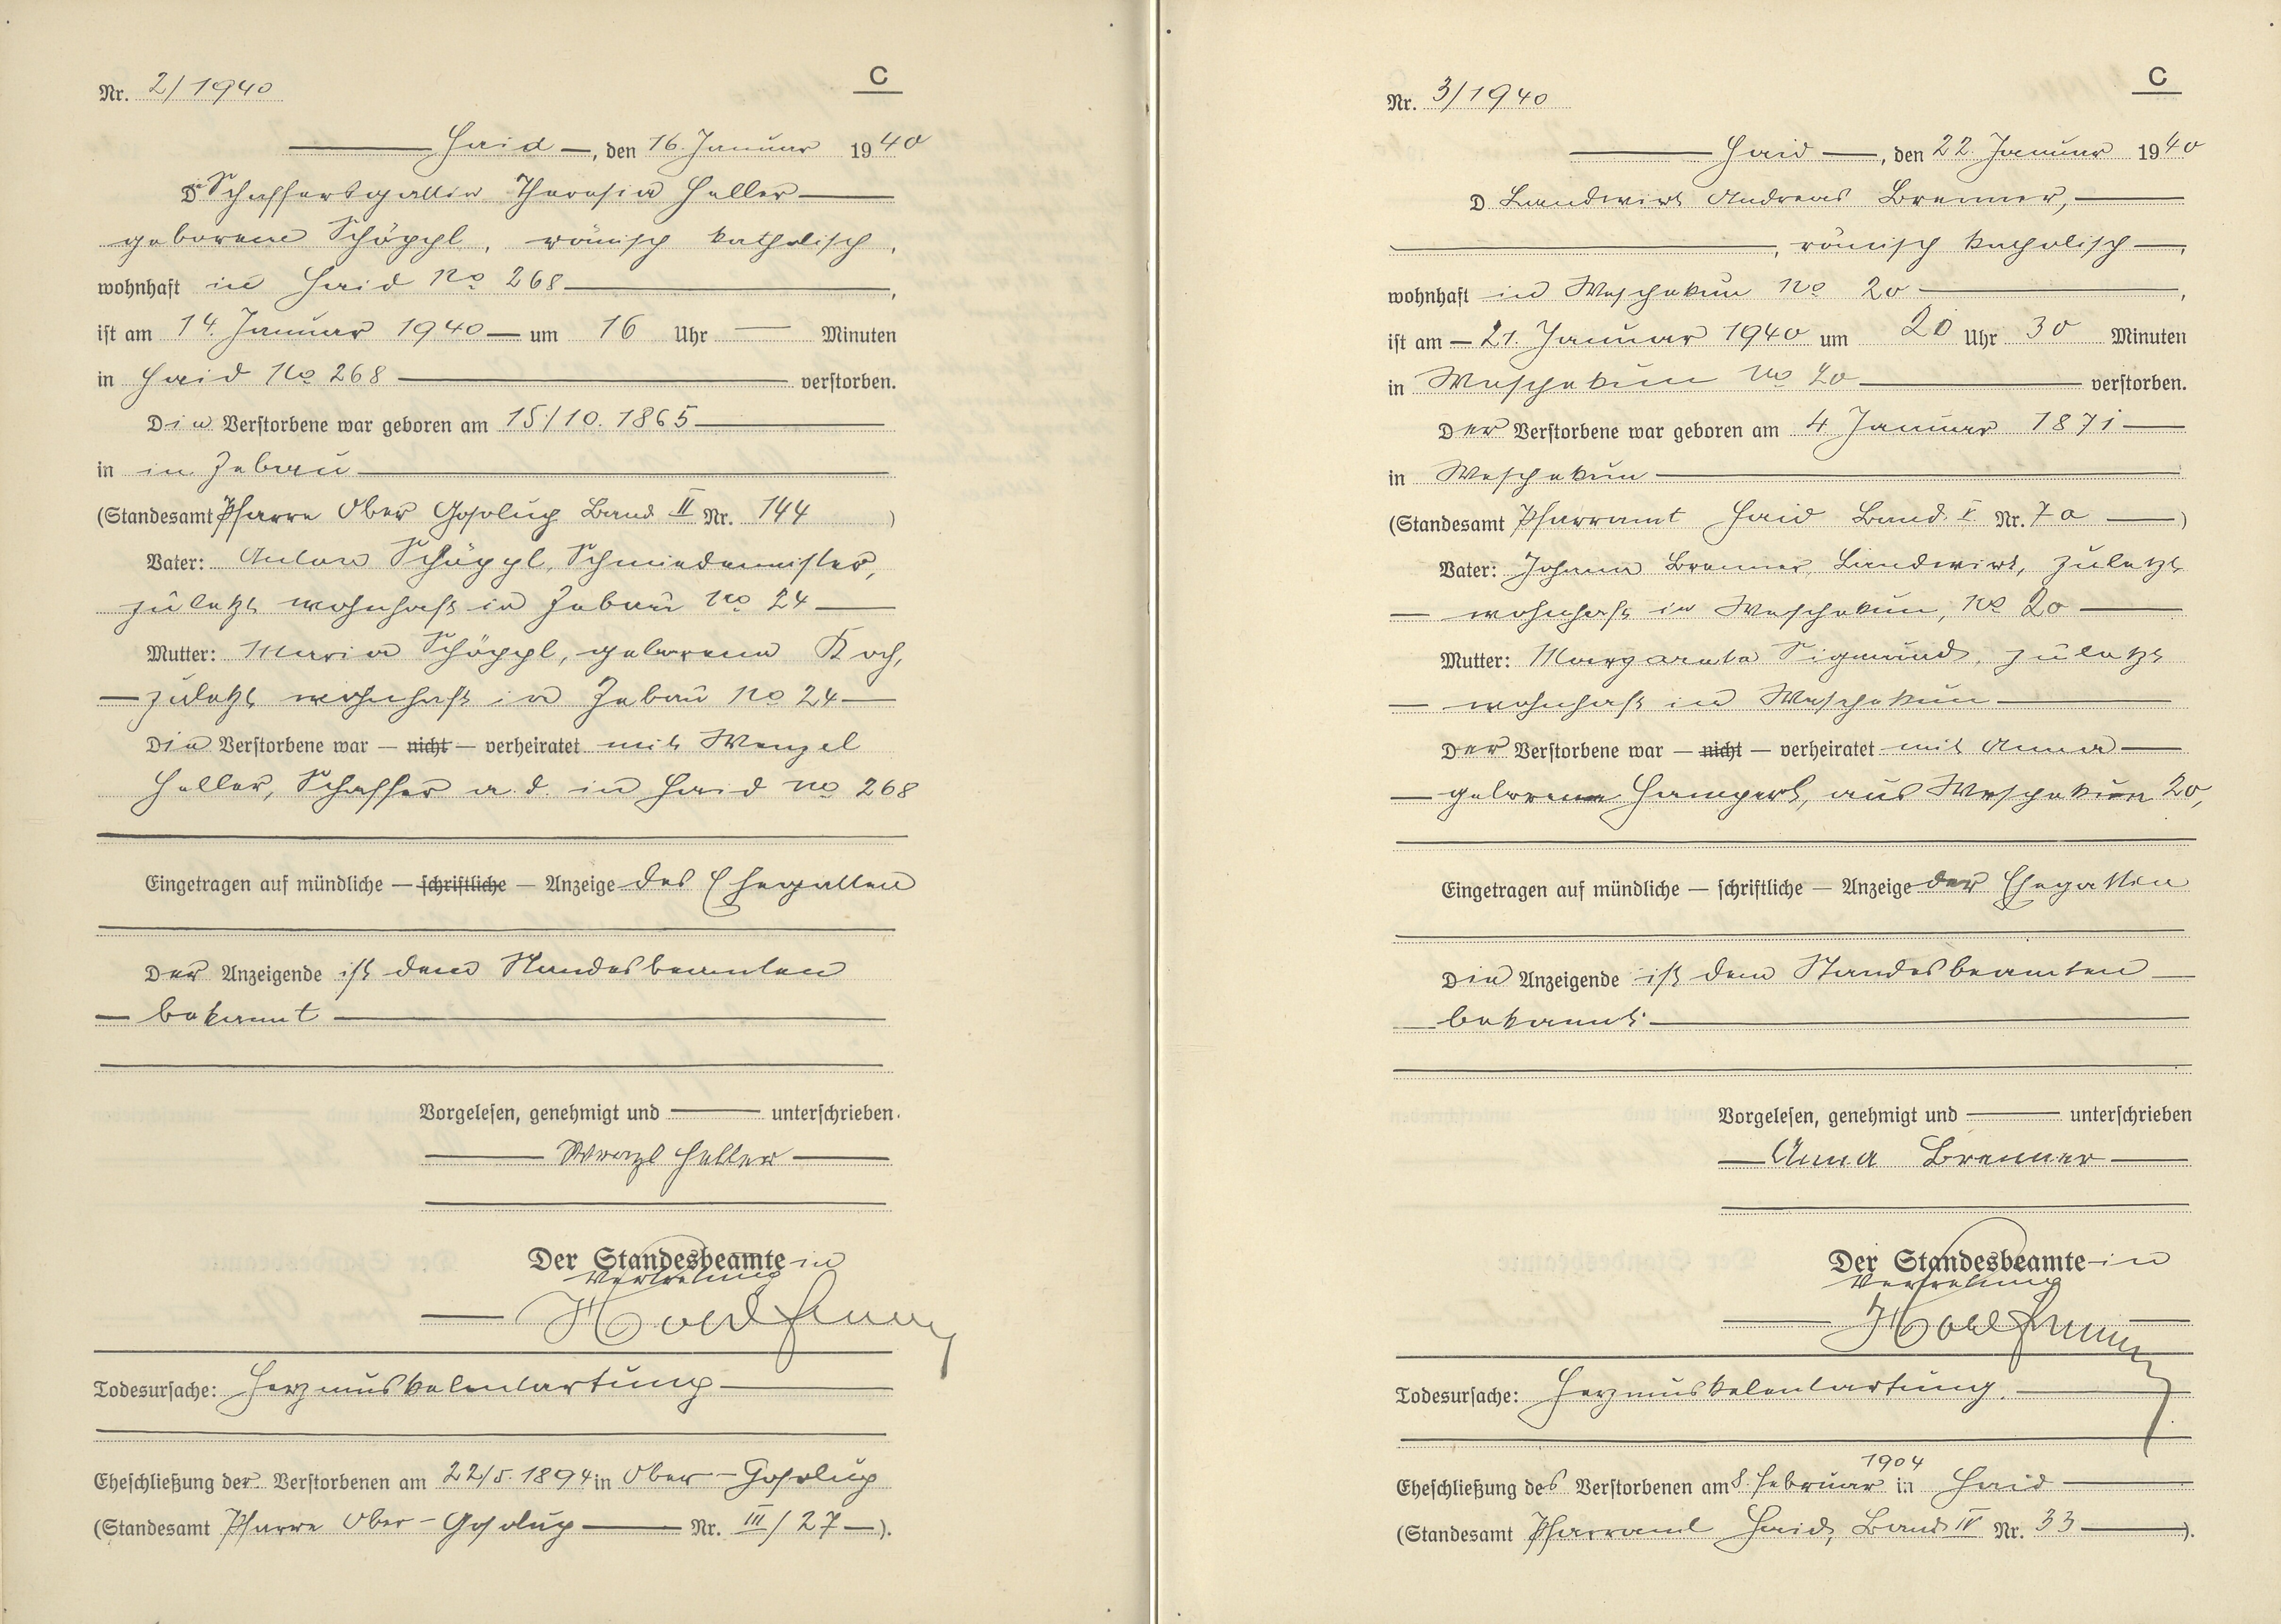 C
Nr. 2/1940
Haid, den 16. Januar 1940
Die Schaffersgattin Theresia Heller
geborene Schöppl, römisch katholisch,
wohnhaft in Haid No 268,
ist am 14. Januar 1940 um 16 Uhr — Minuten
in Haid No 268 verstorben.
Die Verstorbene war geboren am 15/10. 1865
in in Zebau
(Standesamt Pfarre Ober Gosolup Band II Nr. 144)
Vater: Anton Schöppl, Schmiedemeister,
zuletzt wohnhaft in Zebau No 24
Mutter: Maria Schöppl, geborene Koch,
— zuletzt wohnhaft in Zebau No 24 —
Die Verstorbene war — nicht — verheiratet mit Wenzel
Heller, Schaffer a. d. in Haid No 268
Eingetragen auf mündliche — schriftliche — Anzeige des Ehegatten
Der Anzeigende ist dem Standesbeamten
— bekannt —
Vorgelesen, genehmigt und — unterschrieben.
Wenzl Heller
Der Standesbeamte in
Vertretung
Todesursache: Herzmuskelentartung
Eheschließung der Verstorbenen am 22/5. 1894 in Ober-Gosolup
(Standesamt Pfarre Ober-Gosolup — Nr. III/27 —).
C
Nr. 3/1940
Haid, den 22. Januar 1940
D Landwirt Andreas Brenner,
, römisch katholisch —,
wohnhaft in Weschekun No 20,
ist am — 21. Januar 1940 um 20 Uhr 30 Minuten
in Weschekun No 20 verstorben.
Der Verstorbene war geboren am 4. Januar 1871
in Weschekun
(Standesamt Pfarramt Haid Band V Nr. 70 —)
Vater: Johann Brenner, Landwirt, zuletzt
— wohnhaft in Weschekun, No 20 —
Mutter: Margareta Sigmund, zuletzt
— wohnhaft in Weschekun —
Der Verstorbene war — nicht — verheiratet mit Anna —
— geborene Hamperl, aus Weschekun 20,
Eingetragen auf mündliche — schriftliche — Anzeige der Ehegattin
Die Anzeigende ist dem Standesbeamten —
bekannt —
Vorgelesen, genehmigt und — unterschrieben
— Anna Brenner —
Der Standesbeamte in
Vertretung
Todesursache: Herzmuskelentartung.
Eheschließung des Verstorbenen am 8. Februar 1904 in Haid
(Standesamt Pfarramt Haid, Band IV Nr. 33 —).